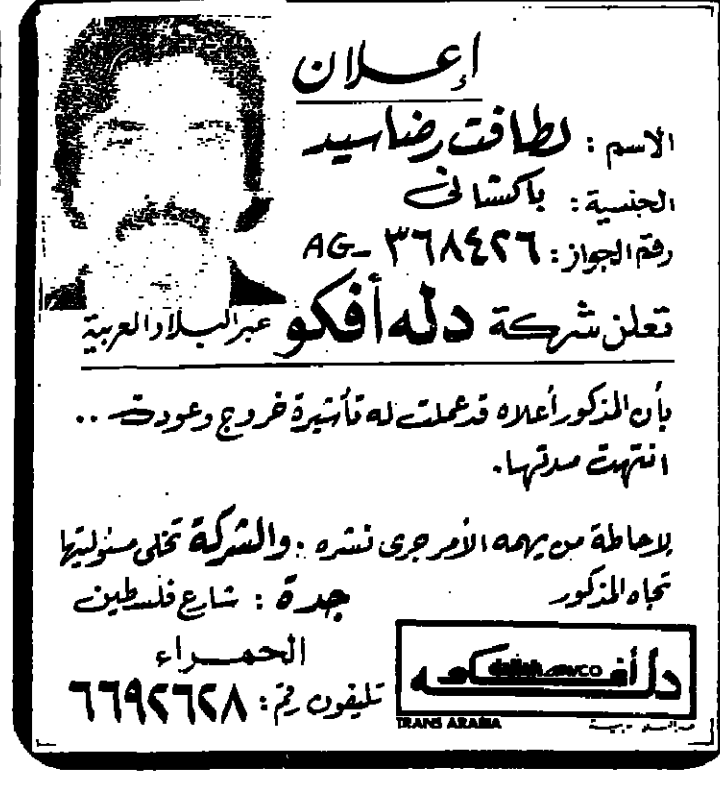 إعلان
الاسم : لطافت رضا سيد
الجنسية : باكستاني
رقم الجواز : ٣٦٨٤٢٦ - AG
تعلن شركة دله أفكو عبر البلاد العربية
بأن المذكور أعلاه قد عملت له تأشيرة خروج وعودت ..
انتهت مدتها .
لإحاطة من يهمه الأمر جرى نشره . والشركة تخلى مسئوليتها
تجاه المذكور
جدة : شارع فلسطين
الحمراء
تليفون رقم : ٦٦٩٢٦٢٨
دله أفكو
dallah avco
TRANS ARABIA